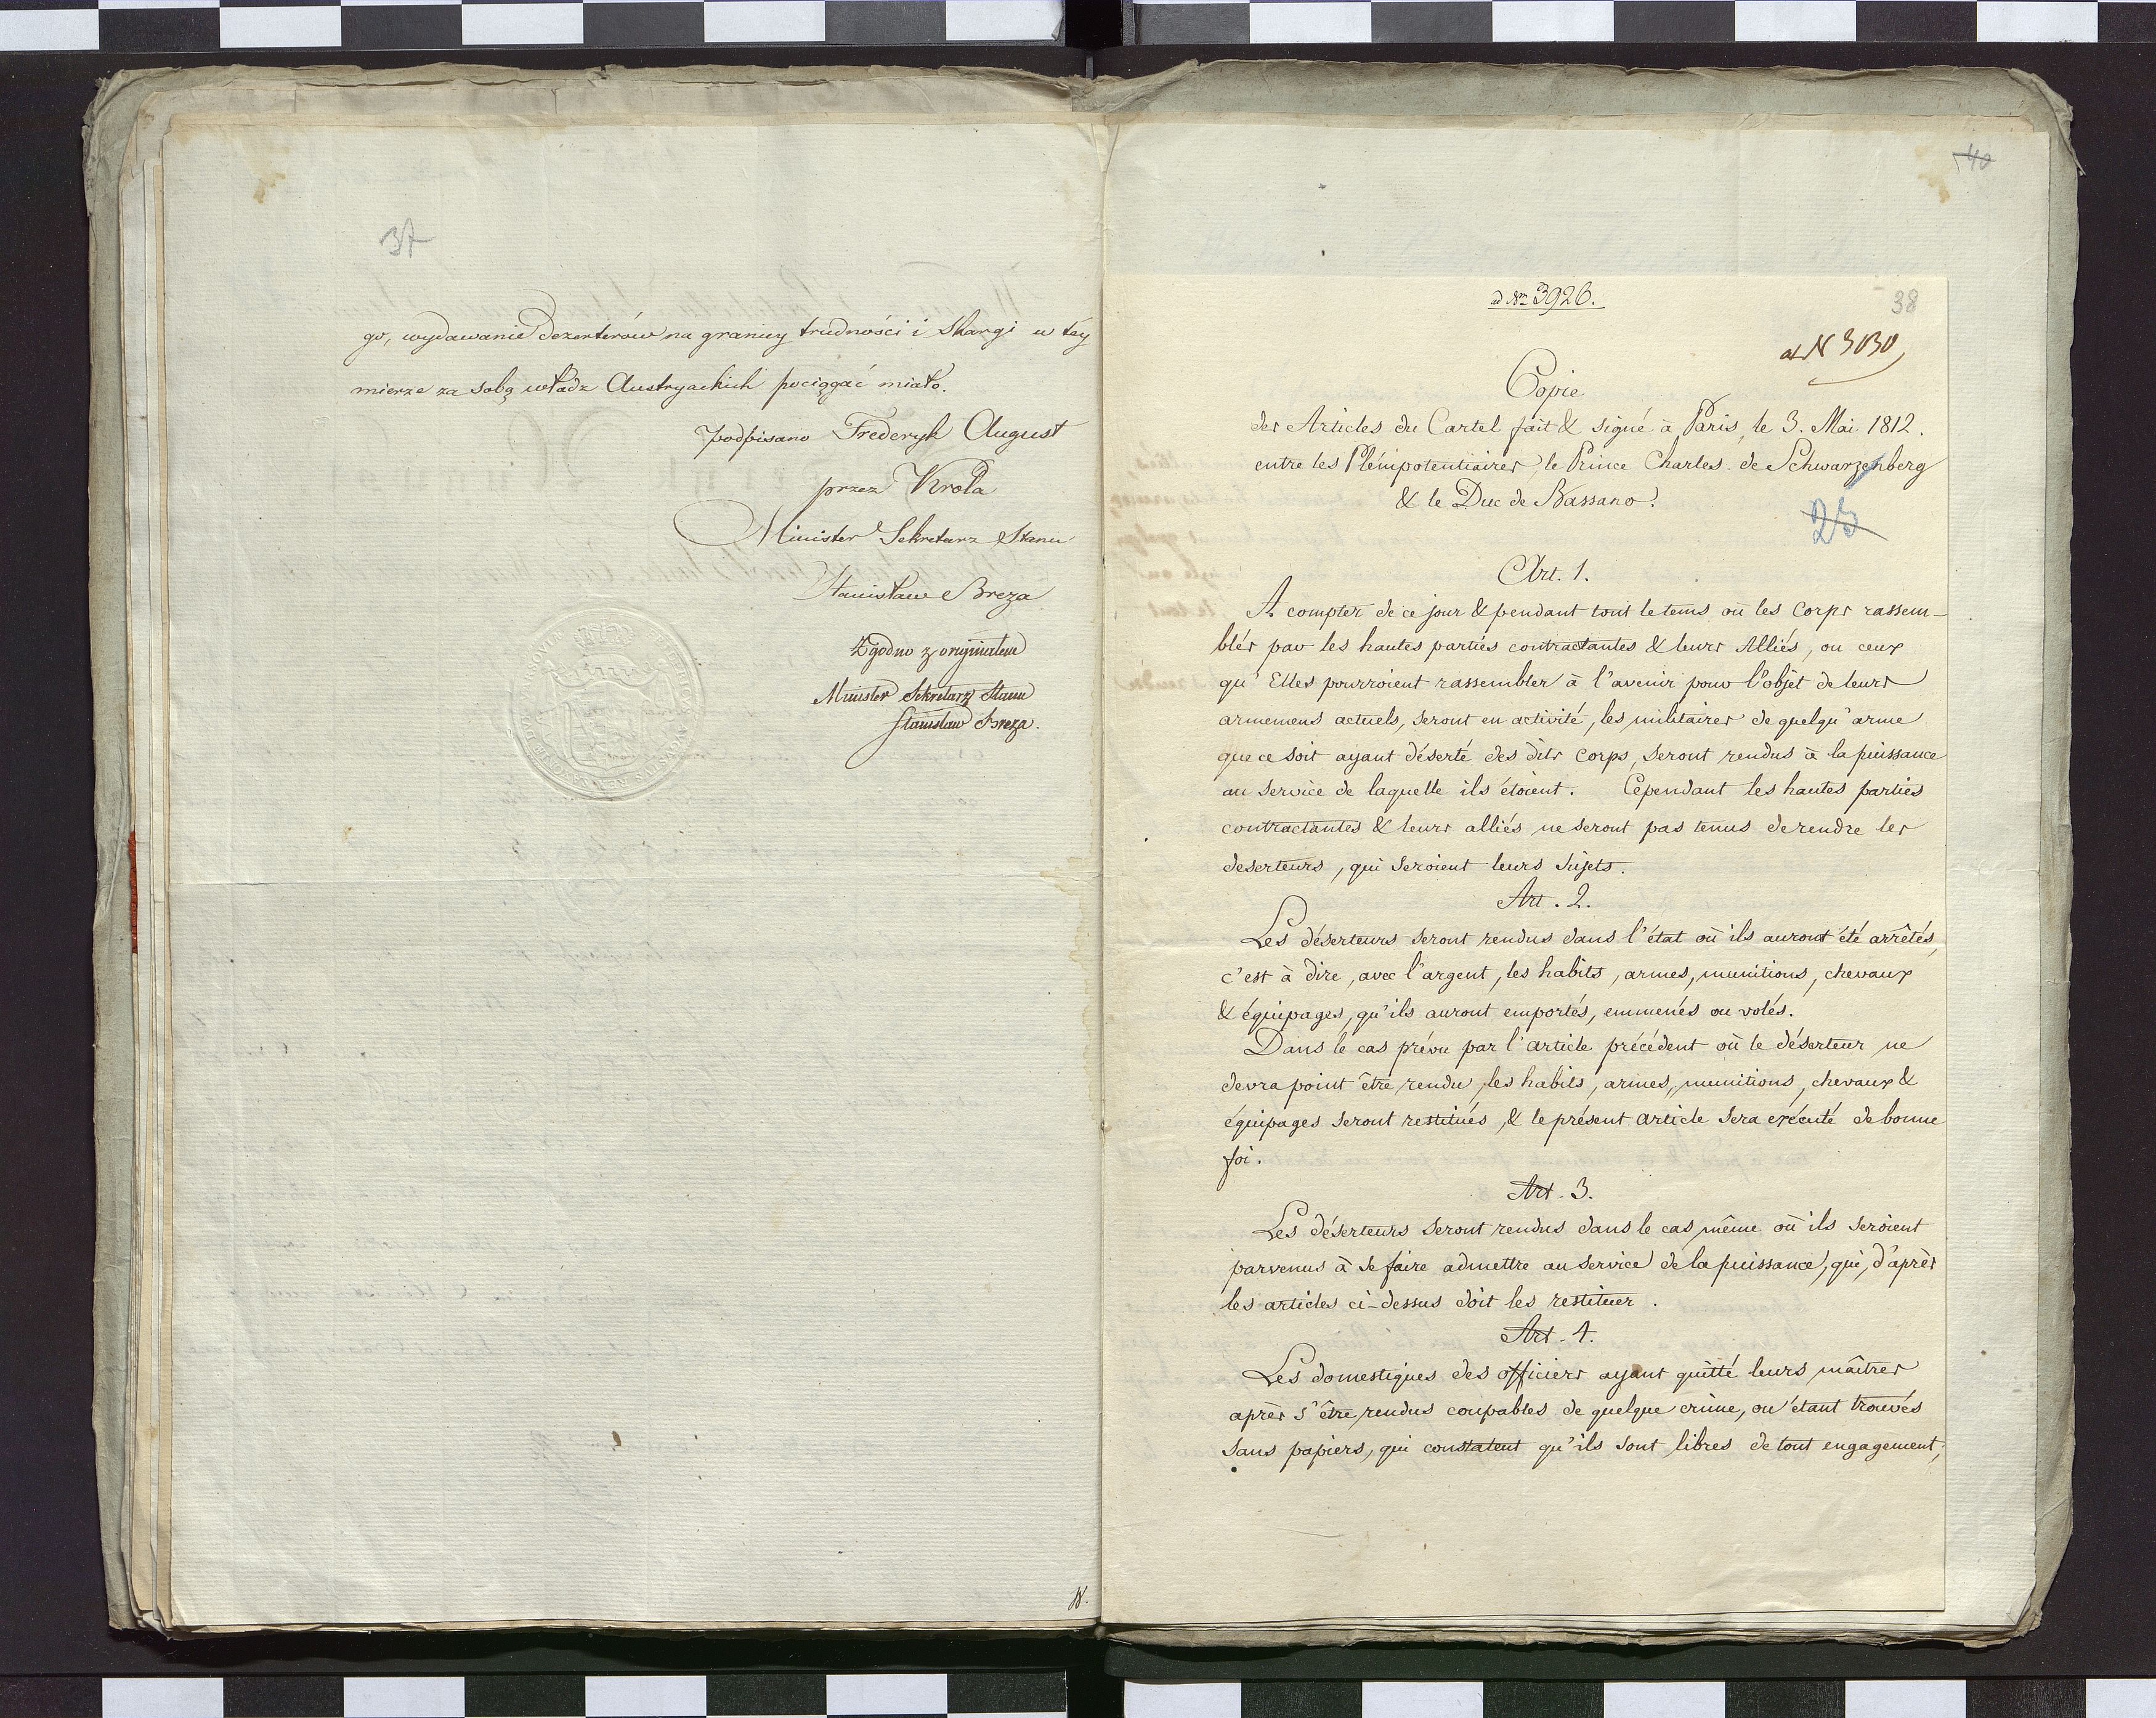 37
go, wydawanie Dezerterów na granicy trudności i Skargi w tey
mierze za sobą władz Austryackich pociągać miało.
podpisano Frederyk August
przez Króla
Minister Sekretarz Stanu
Stanisław Breza
Zgodno z oryginałem
Minister Sekretarz Stanu
Stanisław Breza.
40
38
ad Nm 3926.
ad N 3030
Copie
des Articles du Cartel fait & signé à Paris, le 3. Mai 1812.
entre les Plénipotentiaires, le Prince Charles de Schwarzenberg
& le Duc de Bassano.
25
Art. 1.
A compter de ce jour & pendant tout le tems où les Corps rassem-
blés par les hautes parties contractantes & leurs Alliés, ou ceux
qu'Elles pourroient rassembler à l'avenir pour l'objet de leurs
armemens actuels, seront en activité, les militaires de quelqu'arme
que ce soit ayant déserté des dits Corps, seront rendus à la puissance
au service de laquelle ils étoient. Cependant les hautes parties
contractantes & leurs alliés ne seront pas tenus de rendre les
deserteurs, qui seroient leurs Sujets.
Art. 2.
Les déserteurs seront rendus dans l'état où ils auront été arrêtés,
c'est à dire, avec l'argent, les habits, armes, munitions, chevaux
& équipages, qu'ils auront emportés, emmenés ou volés.
Dans le cas prévu par l'article précédent où le déserteur ne
devra point être rendu, les habits, armes, munitions, chevaux &
équipages seront restitués, & le présent article sera exécuté de bonne
foi.
Art. 3.
Les déserteurs seront rendus dans le cas même où ils seroient
parvenus à se faire admettre au service de la puissance, qui, d'après
les articles ci-dessus doit les restituer.
Art. 4.
Les domestiques des officiers ayant quitté leurs maîtres
après s'être rendus coupables de quelque crime, ou étant trouvés
sans papiers, qui constatent qu'ils sont libres de tout engagement,